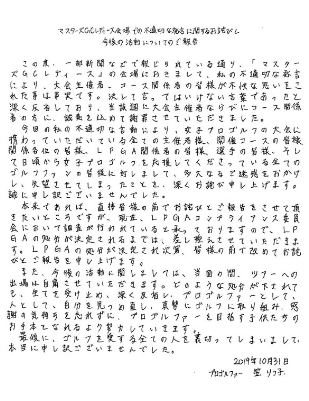 マスターズGCレディース会場での不適切な発言に関するお詫びと
今後の活動についてのご報告
この度、一部新聞などで報じられている通り、「マスター
ズGCレディース」の会場におきまして、私の不適切な発言
により、大会主催者、コース関係者の皆様が不快な思いをさ
れた事は事実です。決して言ってはいけない言葉であったと
深く反省しており、当該大会主催者ならびにコース関係
者の方に、誠意を込めて謝罪させていただきました。
今回の私の不適切な言動により、女子プロゴルフの大会に
携わっていただいている全ての主催者様、開催コースの皆様
関係各位の皆様、LPGA関係者の皆様、選手の皆様、そし
て日頃から女子プロゴルフを応援してくださっている全ての
ゴルフファンの皆様に対しまして、多大なるご迷惑をおかけ
し、失望させてしまったことを、深くお詫び申し上げます。
誠に申し訳ございませんでした。
本来であれば、直接皆様の前でお詫びとご報告をさせて頂
きたいところですが、現在、LPGAコンプライアンス委員
会において調査が行われていると承っておりますので、LP
GAの処分が決定されるまでは、差し控えさせていただきま
す。LPGAの処分が決定され次第、皆様の前で改めてお詫
びとご報告を申し上げます。
また、今後の活動に関しましては、当面の間、ツアーへの
出場は自粛させていただきます。どのような処分が下されて
も、全てを受け止め、深く反省し、プロゴルファーとして、
人として、自分を見つめ直し、真摯にゴルフに取り組み、感
謝の気持ちを忘れずに、プロゴルファーを目指す子供たちの
お手本となれるよう努力していきます。
最後に、ゴルフを愛する全ての人を裏切ってしまいまして、
本当に申し訳ございませんでした。
2019年10月31日
プロゴルファー 笠 りつ子